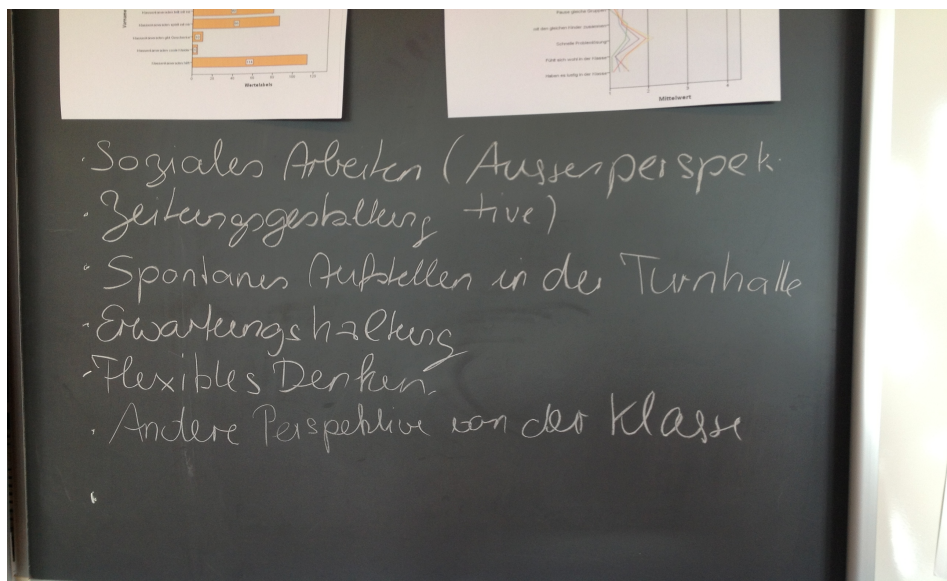 0 20 40 60 80 100 120
Mittelwert
1 2 3 4
· Soziales Arbeiten (Aussenperspek-
· Zeitungsgestaltung tive)
· Spontanes Aufstellen in der Turnhalle
· Erwartungshaltung
· Flexibles Denken.
· Andere Perspektive von der Klasse
·